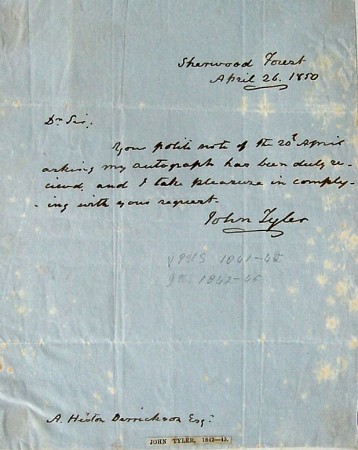 Sherwood Forest
April 26. 1850
Dr Sir,
Your polite note of the 20t April
asking my autograph has been duly re-
ceived, and I take pleasure in comply-
-ing with your request.
John Tyler
1841-42
1842-45
A. Heston Derrickson Esqr
JOHN TYLER, 1842-45.